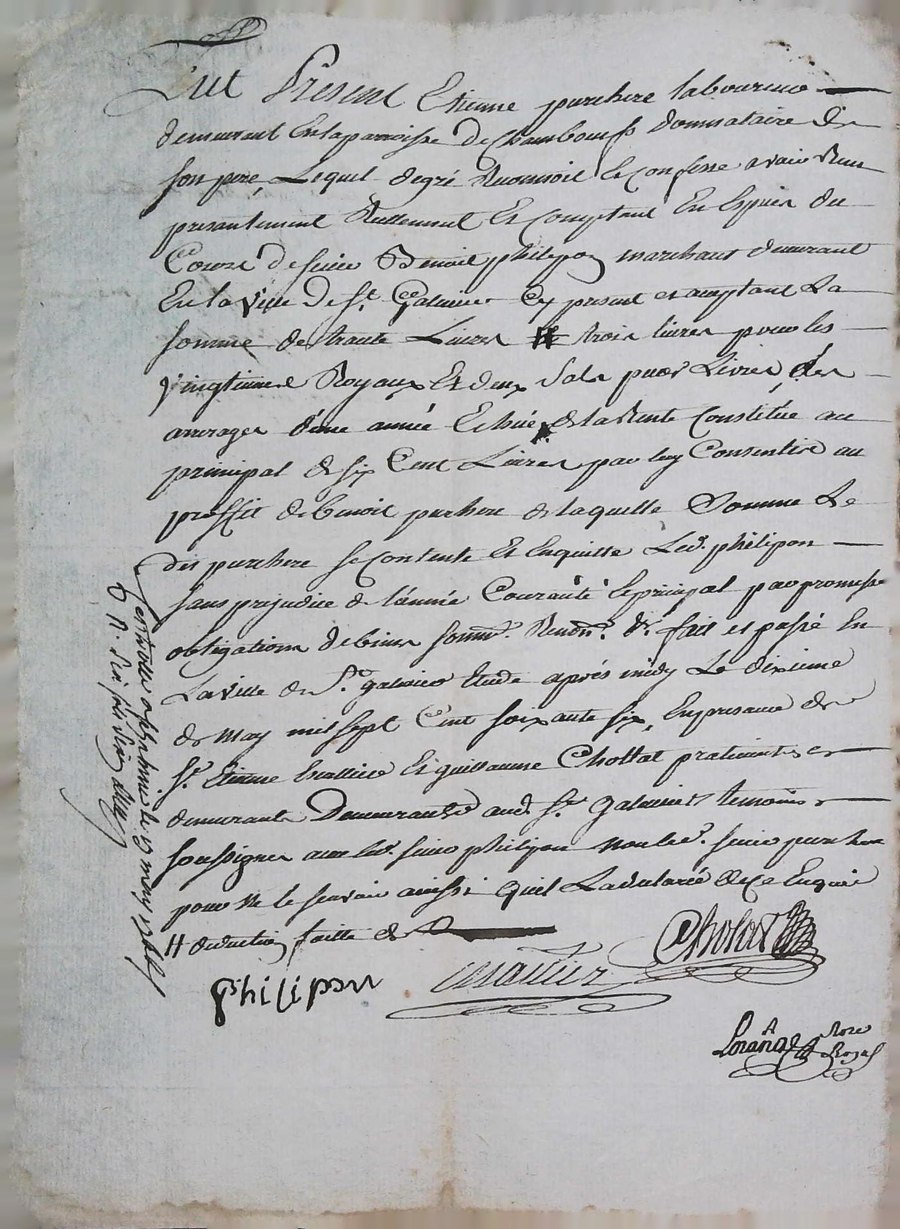 fut Présent Etienne purchere laboureur
demeurant En la parroisse de Chamboeuf donnataire de
son pere, Lequel degré Reconnoit et Confesse avoir Reçu
presentement Reellement Et Comptant En Espèces du
Cours de sieur Benoit philipon marchant demeurant
En la ville De St Galmier Cy present et acceptant La
somme de trante Livres H trois livres pour les
vingtiemes Royaux Et deux Sols pour Livres des
arrerages d'une année Echüe de la Rente Constituée au
principal de six Cent Livres par luy Consentie au
proffit de benoit purchere de laquelle Somme Le
dit purchere se Contente Et Enquitte Led. philipon
sans prejudice de l'année Courante Le principal par promesse
obligations de biens soumn. Renon. &. fait et passé En
La ville de St galmier Etude aprés midy Le dixieme
de may mil sept Cent soixante six, En presance de
Sr. Etienne Et guillaume Chollat praticiens
demeurants Demeurants aud. St. Galmier temoins
soussignés avec led. sieur philipon non led. sieur purchere
pour ne le sçavoir ainsi qu'il La declaré de ce Enquis
H deduction faitte de
Philipon
Cholat
Royal
Controllé a St galmier le may 1766